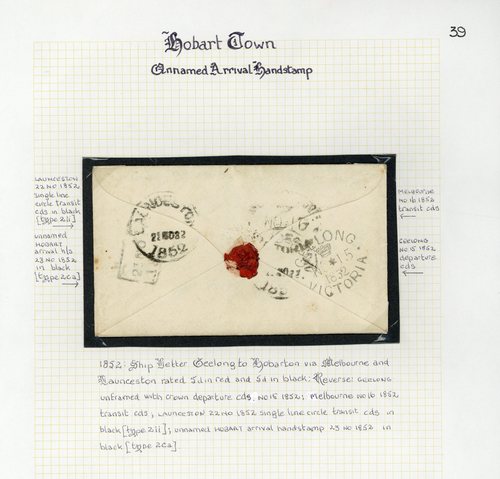 39
Hobart Town
Unnamed Arrival Handstamp
LAUNCESTON
22 NO 1852
single line
circle transit
cds in black
[type 2ii]
unnamed
HOBART
arrival h/s
23 NO 1852
in black
[type 2ca]
LAUNCESTON
1852
GEELONG
* 15
1852
VICTORIA
MELBOURNE
NO 16 1852
transit cds
GEELONG
NO 15 1852
departure
cds
1852: Ship Letter Geelong to Hobarton via Melbourne and
Launceston rated 5d in red and 5d in black. Reverse: GEELONG
unframed with crown departure cds, NO 15 1852; Melbourne NO 16 1852
transit cds; LAUNCESTON 22 NO 1852 single line circle transit cds in
black [type 2ii]; unnamed HOBART arrival handstamp 23 NO 1852 in
black [type 2ca]